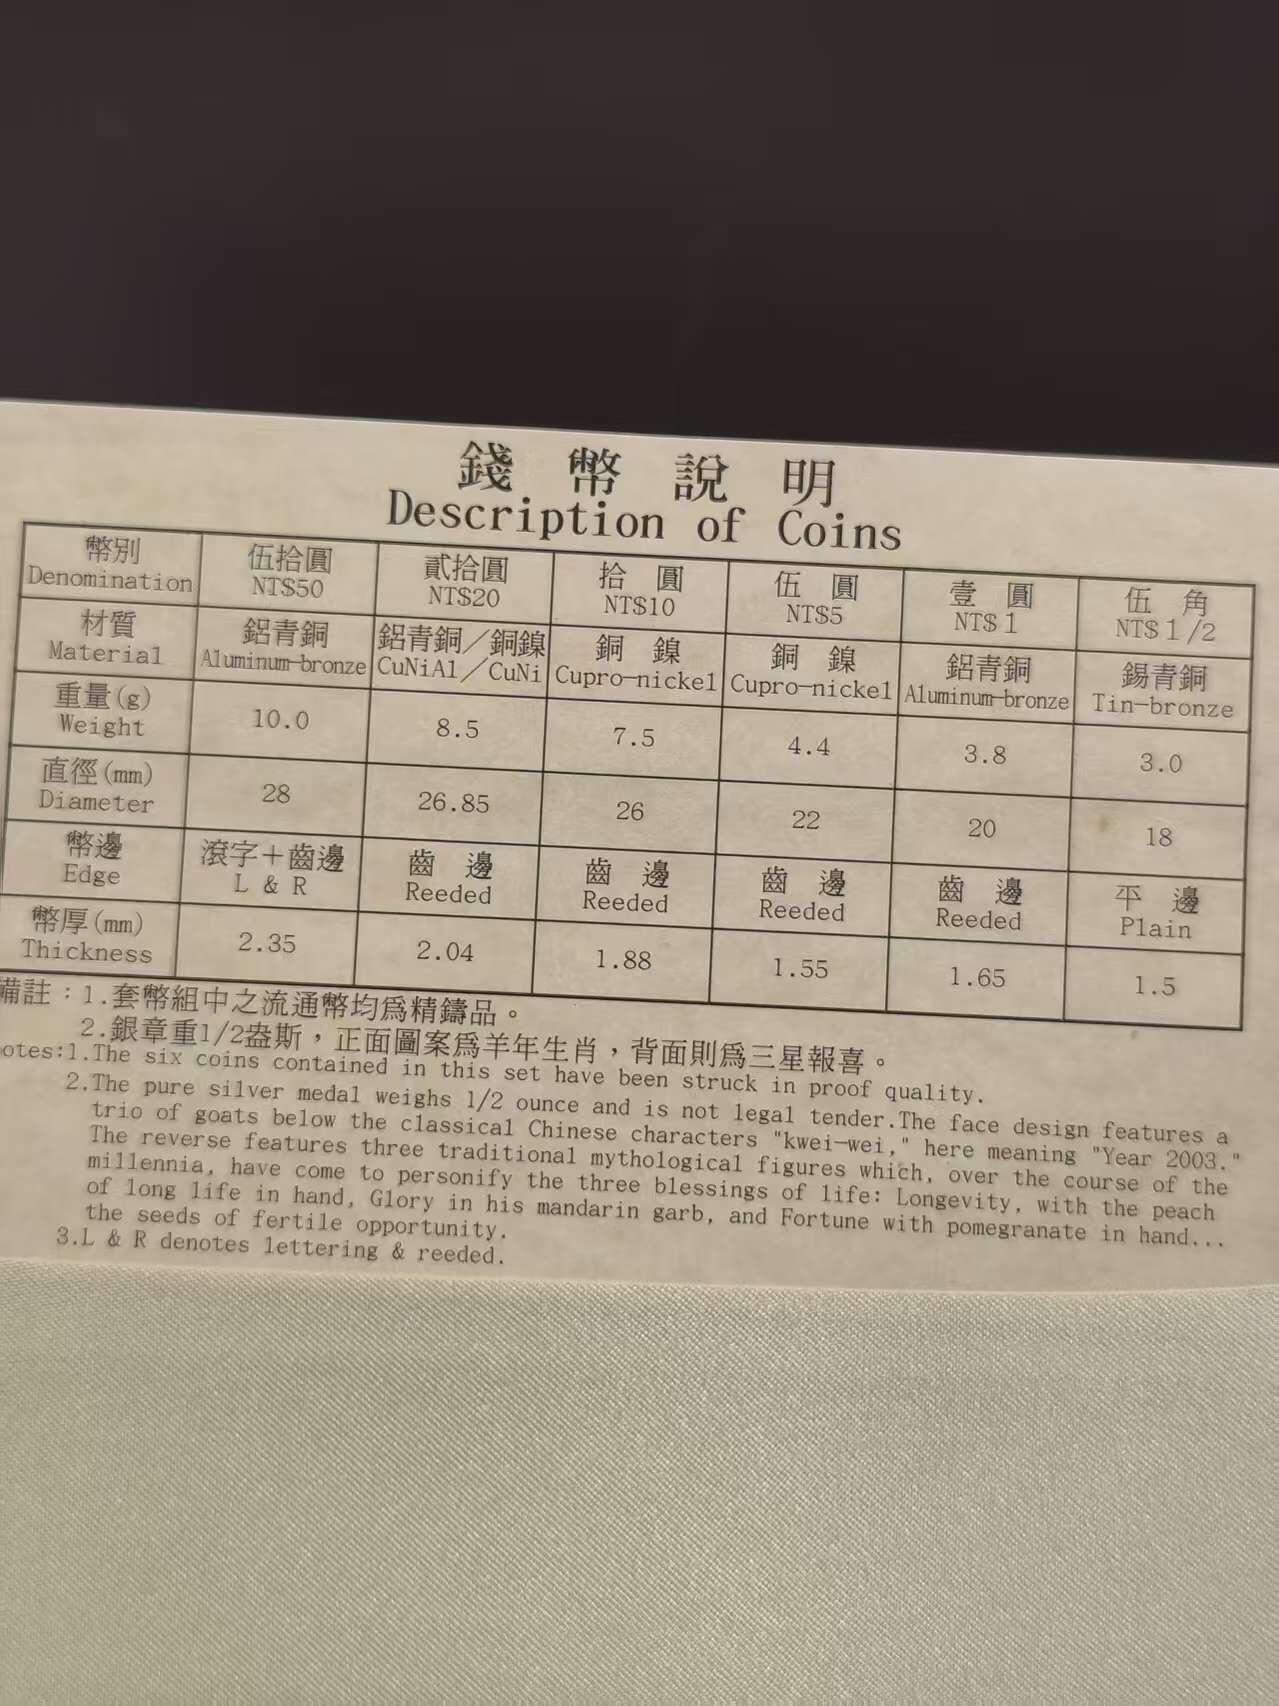 錢幣說明
Description of Coins
幣別 伍拾圓 貳拾圓 拾圓 伍圓 壹圓 伍角
Denomination NT$50 NT$20 NT$10 NT$5 NT$1 NT$1/2
材質 鋁青銅 鋁青銅／銅鎳 銅鎳 銅鎳 鋁青銅 錫青銅
Material Aluminum-bronze CuNiAl／CuNi Cupro-nickel Cupro-nickel Aluminum-bronze Tin-bronze
重量(g)
Weight 10.0 8.5 7.5 4.4 3.8 3.0
直徑(mm)
Diameter 28 26.85 26 22 20 18
幣邊 滾字＋齒邊 齒邊 齒邊 齒邊 齒邊 平邊
Edge L & R Reeded Reeded Reeded Reeded Plain
幣厚(mm)
Thickness 2.35 2.04 1.88 1.55 1.65 1.5
備註：1.套幣組中之流通幣均爲精鑄品。
2.銀章重1/2盎斯，正面圖案爲羊年生肖，背面則爲三星報喜。
otes:1.The six coins contained in this set have been struck in proof quality.
2.The pure silver medal weighs 1/2 ounce and is not legal tender.The face design features a
trio of goats below the classical Chinese characters "kwei-wei," here meaning "Year 2003."
The reverse features three traditional mythological figures which, over the course of the
millennia, have come to personify the three blessings of life: Longevity, with the peach
of long life in hand, Glory in his mandarin garb, and Fortune with pomegranate in hand...
the seeds of fertile opportunity.
3.L & R denotes lettering & reeded.